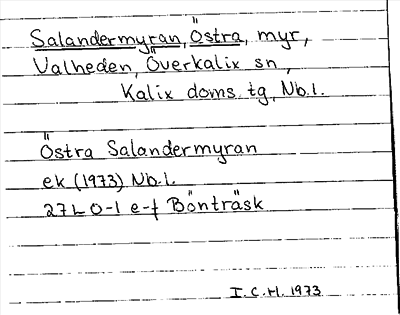 Salandermyran, Östra, myr,
Valheden, Överkalix sn,
Kalix doms. tg, Nb.l.
Östra Salandermyran
ek (1973) Nb.l.
27L 0-1 e-f Bönträsk
I.C.H. 1973